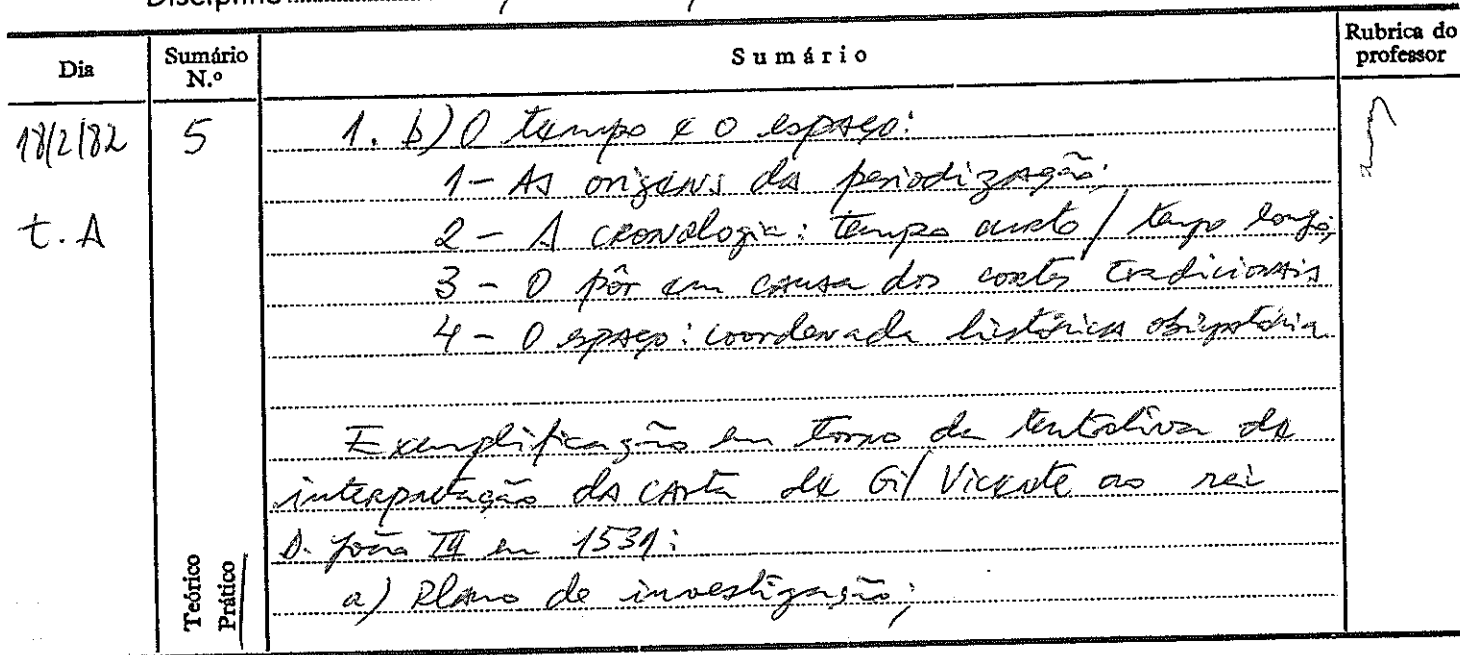 Disciplina
Dia
Sumário N.º
Sumário
Rubrica do professor
18/2/82
5
t. A
1. b) O tempo e o espaço:
1- As origens da periodização;
2- A cronologia: tempo curto / tempo longo;
3- O pôr em causa dos cortes tradicionais
4- O espaço: coordenada histórica obrigatória
Exemplificação em torno da tentativa de
interpretação da carta de Gil Vicente ao rei
D. João III em 1531:
a) Plano de investigação;
Teórico
Prático